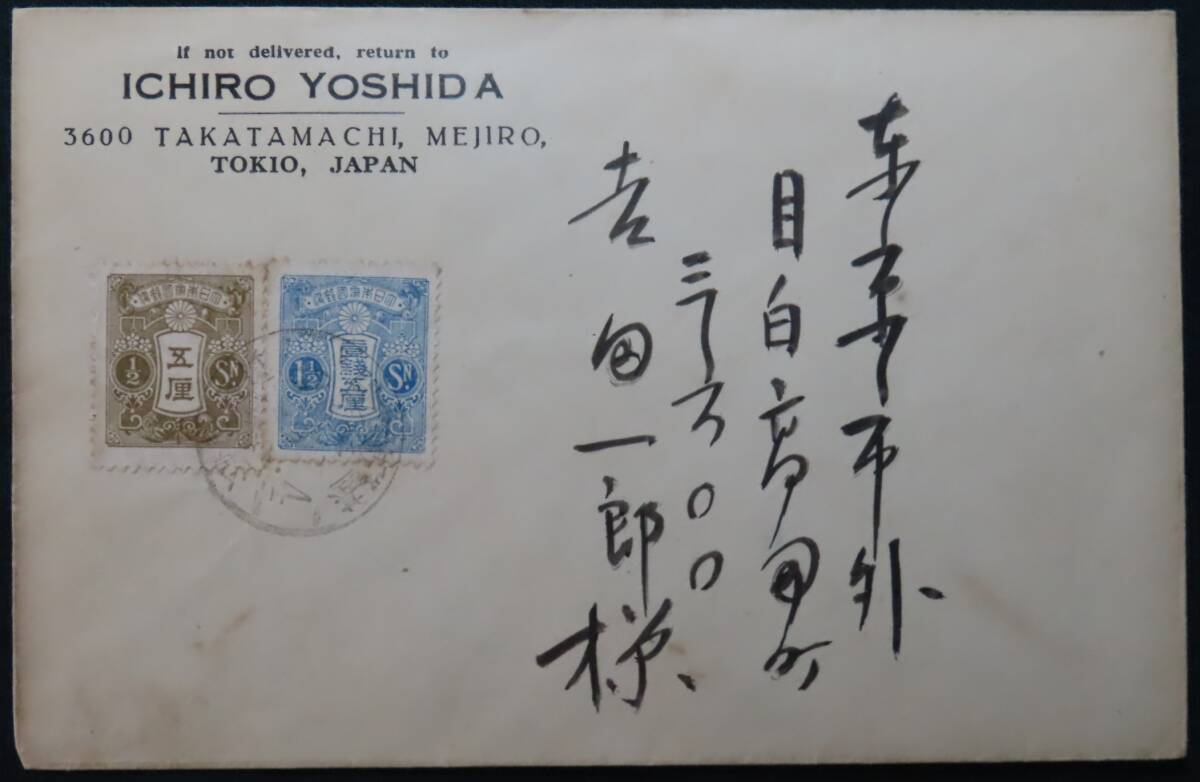 If not delivered, return to
ICHIRO YOSHIDA
3600 TAKATAMACHI, MEJIRO,
TOKIO, JAPAN
東京市外
目白高田町
三六〇〇
吉田一郎様
大日本帝国郵便
五厘
½ SN.
大日本帝国郵便
壹銭五厘
1½ SN.